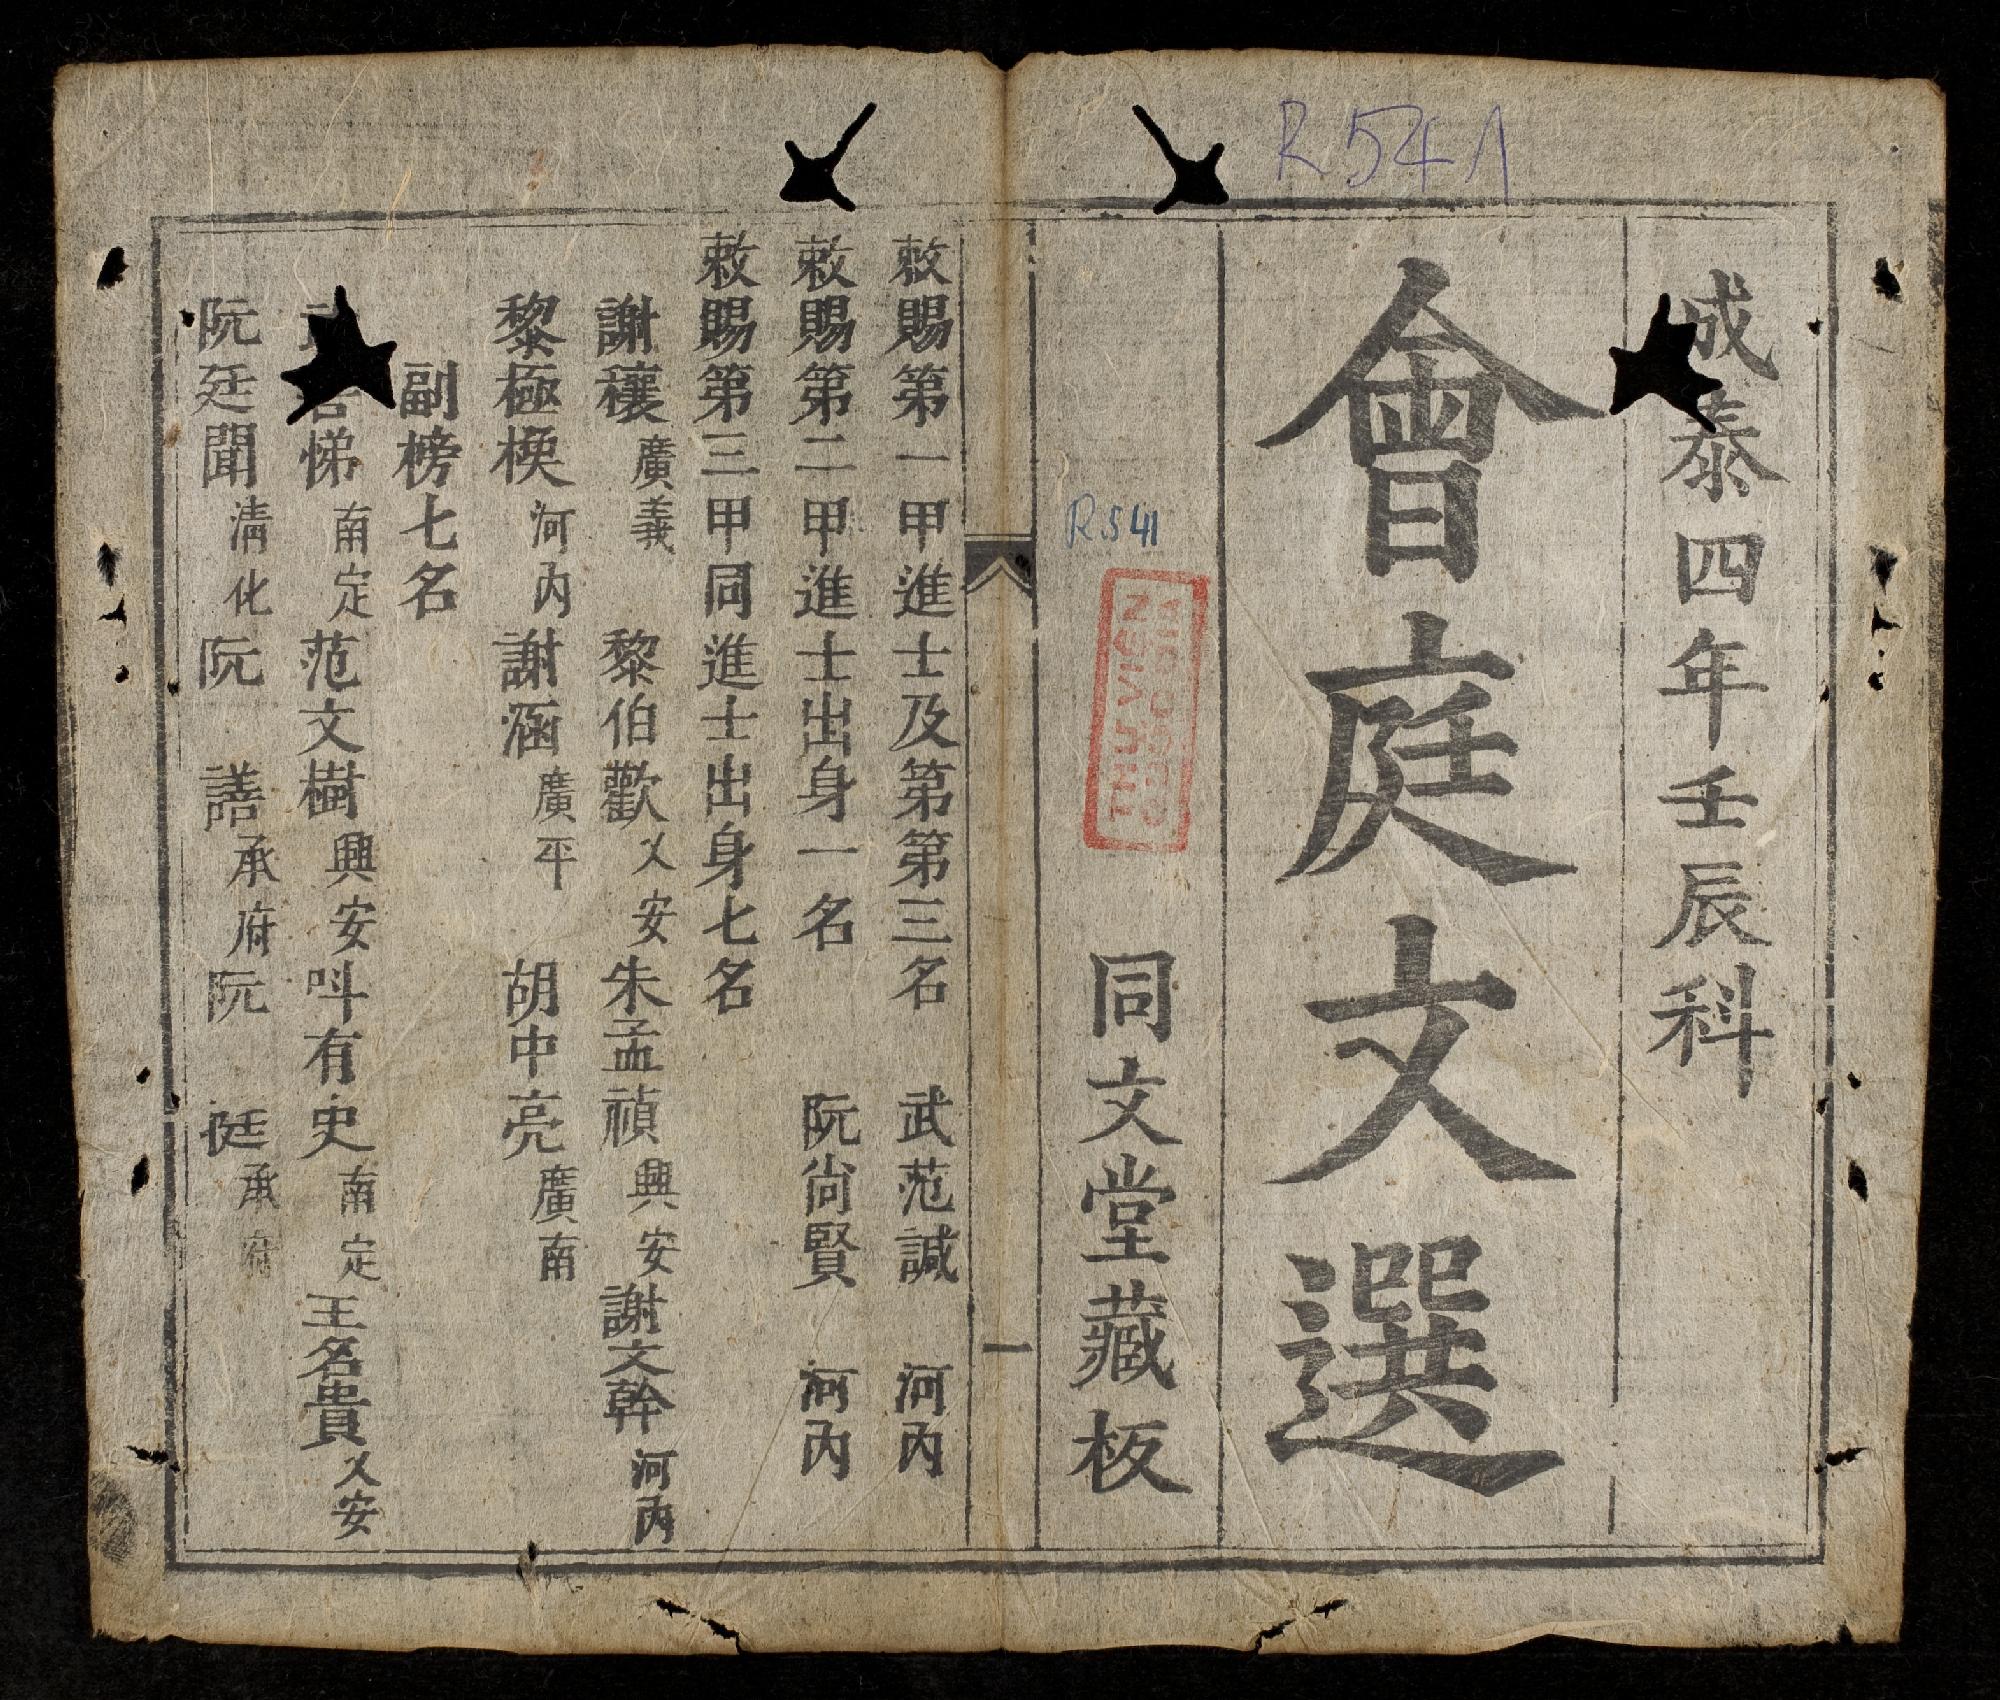 R541
成泰四年壬辰科
會庭文選
R.541
同文堂藏板
一
敕賜第一甲進士及第第三名 武范諴 河內
敕賜第二甲進士出身一名 阮尙賢 河內
敕賜第三甲同進士出身七名
謝穰 廣義 黎伯歡 乂安 朱孟禎 興安 謝文幹 河內
黎極楆 河內 謝涵 廣平 胡中亮 廣南
副榜七名
悌 南定 范文樹 興安 呌有史 南定 王名貴 乂安
阮廷聞 清化 阮 譱 承府 阮 挺 承府